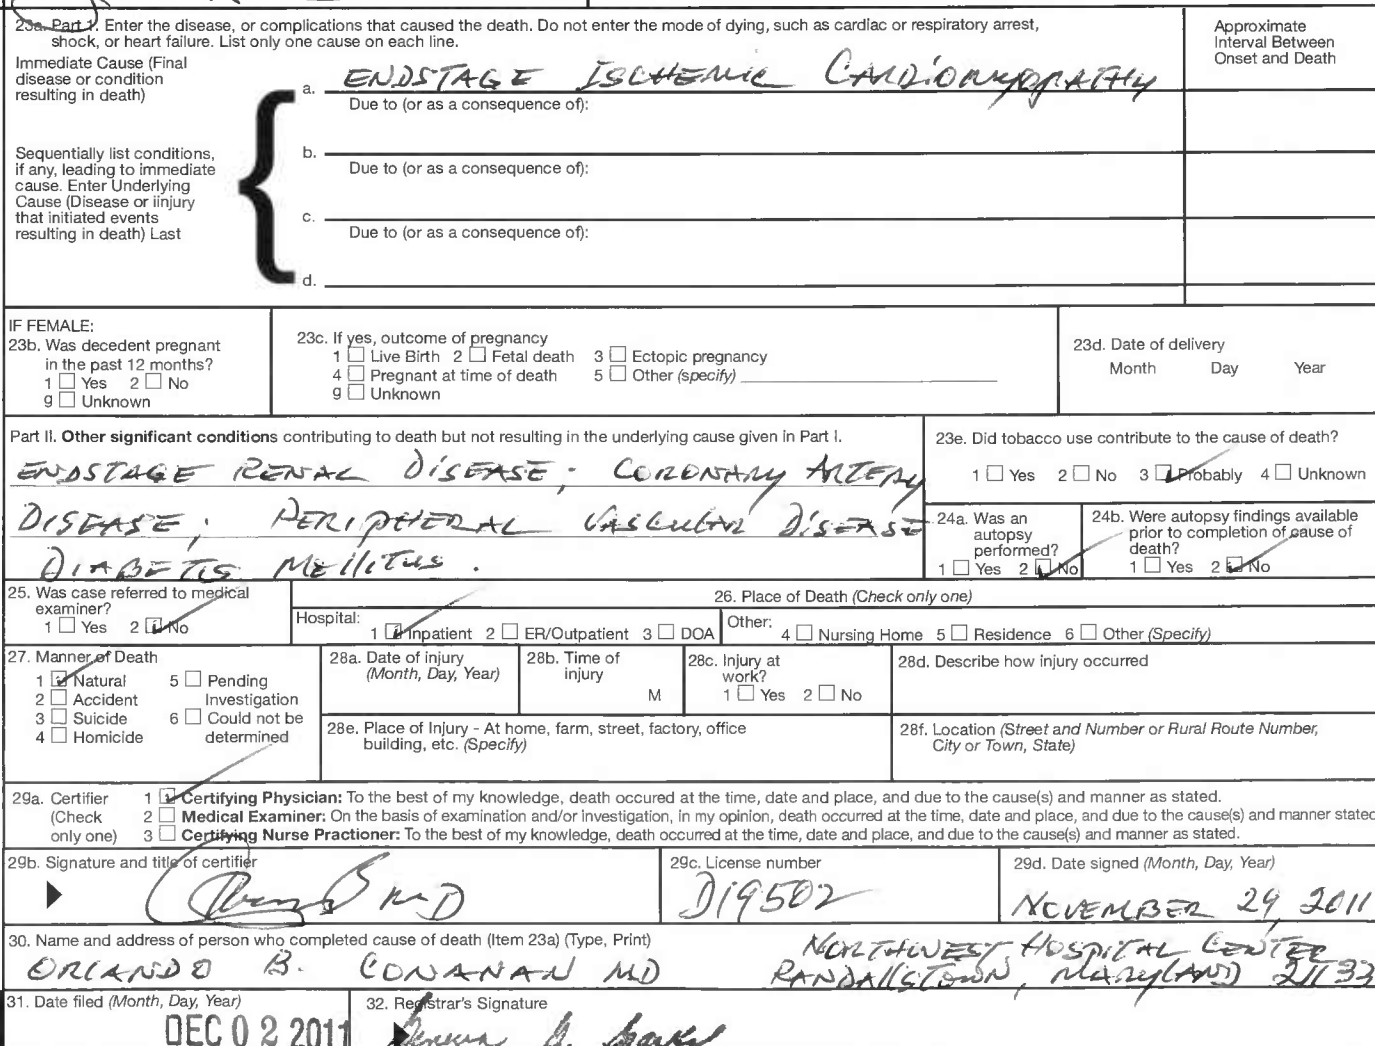 23a. Part I. Enter the disease, or complications that caused the death. Do not enter the mode of dying, such as cardiac or respiratory arrest,
shock, or heart failure. List only one cause on each line.
Approximate
Interval Between
Onset and Death
Immediate Cause (Final
disease or condition
resulting in death)
a. ENDSTAGE ISCHEMIC CARDIOMYOPATHY
Due to (or as a consequence of):
Sequentially list conditions,
if any, leading to immediate
cause. Enter Underlying
Cause (Disease or iinjury
that initiated events
resulting in death) Last
b.
Due to (or as a consequence of):
c.
Due to (or as a consequence of):
d.
IF FEMALE:
23b. Was decedent pregnant
in the past 12 months?
1 ☐ Yes 2 ☐ No
9 ☐ Unknown
23c. If yes, outcome of pregnancy
1 ☐ Live Birth 2 ☐ Fetal death 3 ☐ Ectopic pregnancy
4 ☐ Pregnant at time of death 5 ☐ Other (specify)
9 ☐ Unknown
23d. Date of delivery
Month Day Year
Part II. Other significant conditions contributing to death but not resulting in the underlying cause given in Part I.
ENDSTAGE RENAL DISEASE; CORONARY ARTERY
DISEASE; PERIPHERAL VASCULAR DISEASE
DIABETIS MELLITUS.
23e. Did tobacco use contribute to the cause of death?
1 ☐ Yes 2 ☐ No 3 ☑ Probably 4 ☐ Unknown
24a. Was an
autopsy
performed?
1 ☐ Yes 2 ☑ No
24b. Were autopsy findings available
prior to completion of cause of
death?
1 ☐ Yes 2 ☑ No
25. Was case referred to medical
examiner?
1 ☐ Yes 2 ☑ No
26. Place of Death (Check only one)
Hospital: 1 ☑ Inpatient 2 ☐ ER/Outpatient 3 ☐ DOA
Other: 4 ☐ Nursing Home 5 ☐ Residence 6 ☐ Other (Specify)
27. Manner of Death
1 ☑ Natural 5 ☐ Pending
2 ☐ Accident Investigation
3 ☐ Suicide 6 ☐ Could not be
4 ☐ Homicide determined
28a. Date of injury
(Month, Day, Year)
28b. Time of
injury
M
28c. Injury at
work?
1 ☐ Yes 2 ☐ No
28d. Describe how injury occurred
28e. Place of Injury - At home, farm, street, factory, office
building, etc. (Specify)
28f. Location (Street and Number or Rural Route Number,
City or Town, State)
29a. Certifier
(Check
only one)
1 ☑ Certifying Physician: To the best of my knowledge, death occured at the time, date and place, and due to the cause(s) and manner as stated.
2 ☐ Medical Examiner: On the basis of examination and/or investigation, in my opinion, death occurred at the time, date and place, and due to the cause(s) and manner stated
3 ☐ Certifying Nurse Practioner: To the best of my knowledge, death occurred at the time, date and place, and due to the cause(s) and manner as stated.
29b. Signature and title of certifier
MD
29c. License number
D19502
29d. Date signed (Month, Day, Year)
NOVEMBER 29, 2011
30. Name and address of person who completed cause of death (Item 23a) (Type, Print)
ORLANDO B. CONANAN MD
NORTHWEST HOSPITAL CENTER
RANDALLSTOWN, MARYLAND 21133
31. Date filed (Month, Day, Year)
DEC 02 2011
32. Registrar's Signature